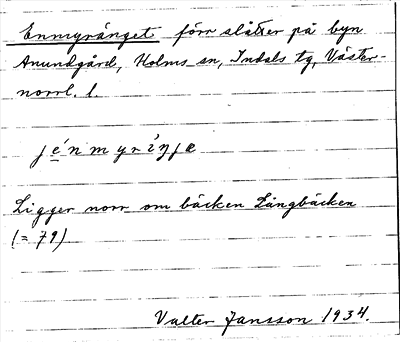 Enmyränget förr slåtter på byn
Anundgård, Holms sn, Indals tg, Väster-
norrl. l.
jénmyrìŋjæ
Ligger norr om bäcken Långbäcken
(= 79)
Valter Jansson 1934.